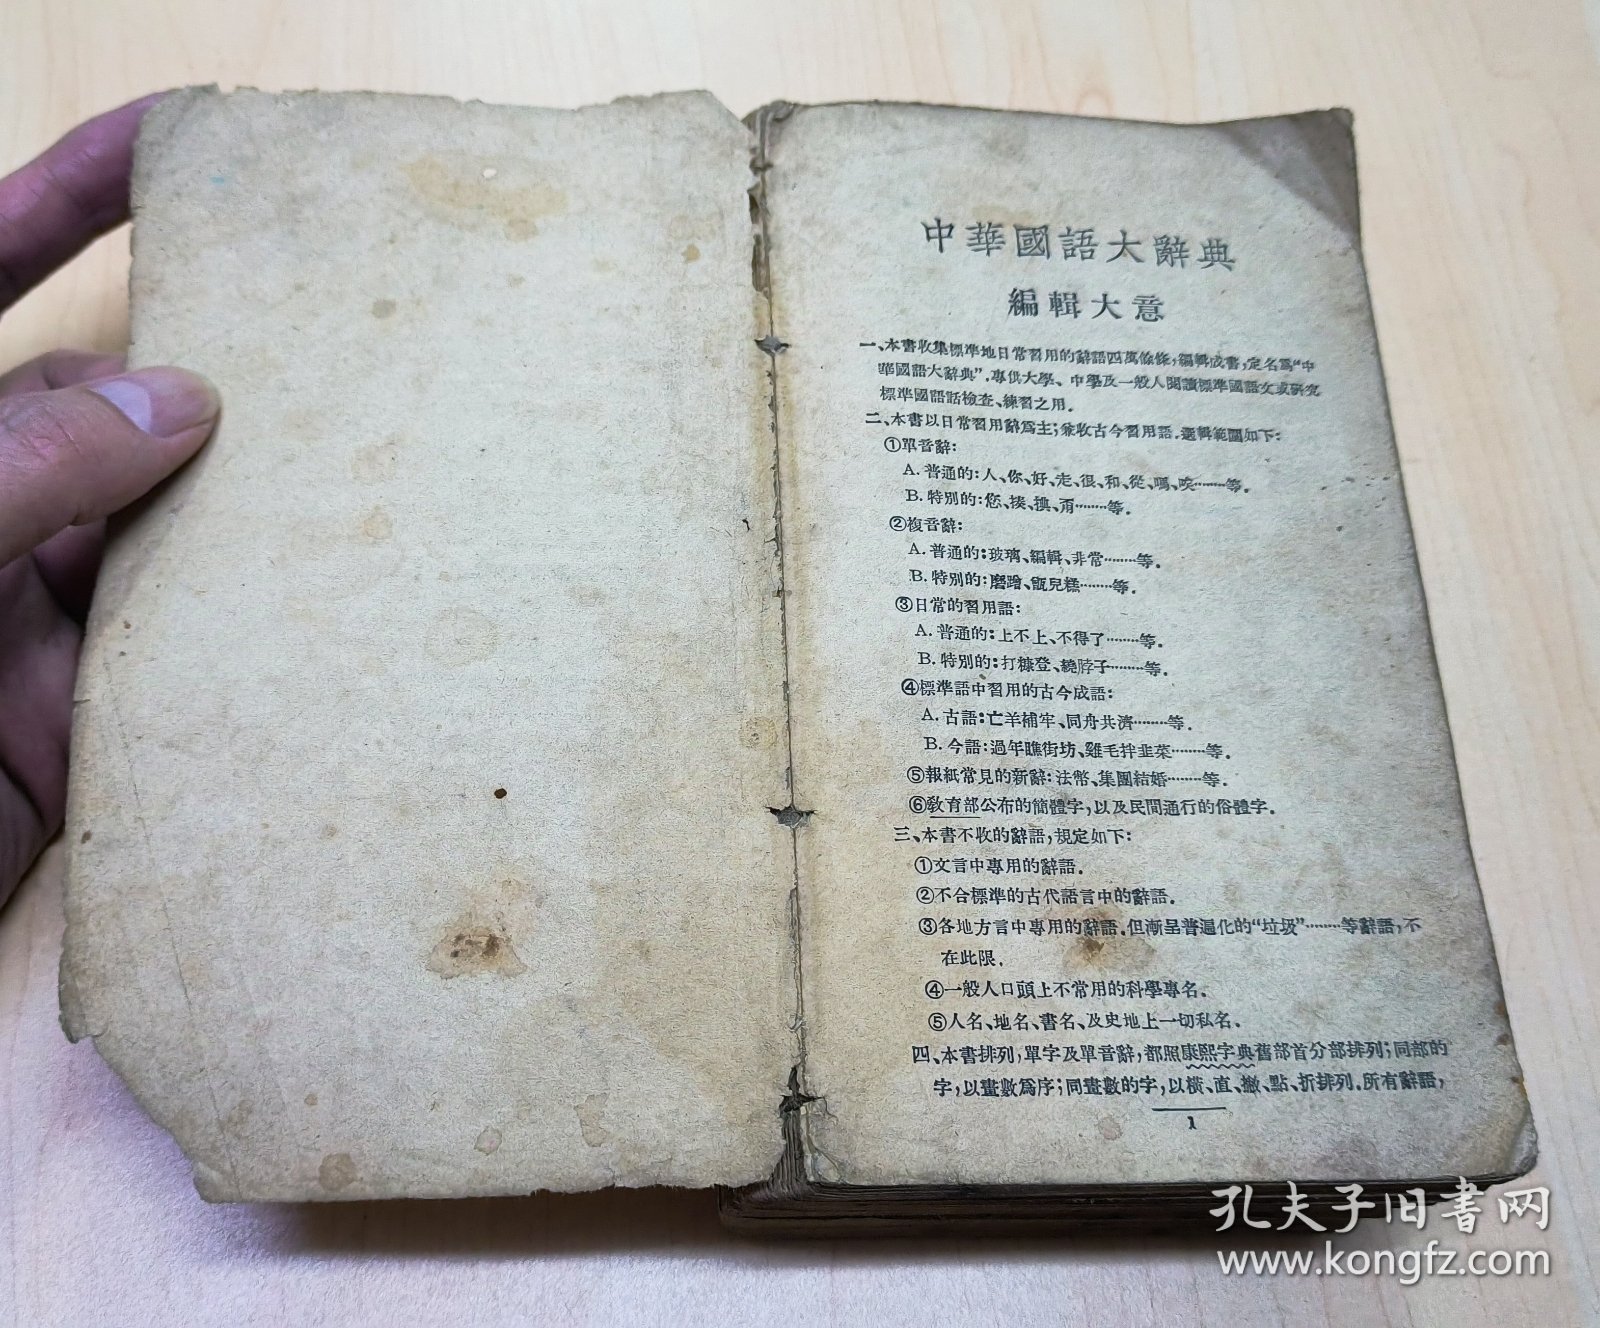 中華國語大辭典
編輯大意
一、本書收集標準地日常習用的辭語四萬餘條，編輯成書，定名爲“中
華國語大辭典”，專供大學、中學及一般人閱讀標準國語文或研究
標準國語話檢查、練習之用．
二、本書以日常習用辭爲主；兼收古今習用語．選輯範圍如下：
①單音辭：
A. 普通的：人、你、好、走、很、和、從、嗎、唉………等．
B. 特別的：您、揍、㨪、甭………等．
②複音辭：
A. 普通的：玻璃、編輯、非常………等．
B. 特別的：磨蹭、甑兒糕………等．
③日常的習用語：
A. 普通的：上不上、不得了………等．
B. 特別的：打糠登、繞脖子………等．
④標準語中習用的古今成語：
A. 古語：亡羊補牢、同舟共濟………等．
B. 今語：過年瞧街坊、雞毛拌韭菜………等．
⑤報紙常見的新辭：法幣、集團結婚………等．
⑥教育部公布的簡體字，以及民間通行的俗體字．
三、本書不收的辭語，規定如下：
①文言中專用的辭語．
②不合標準的古代語言中的辭語．
③各地方言中專用的辭語．但漸呈普遍化的“垃圾”………等辭語，不
在此限．
④一般人口頭上不常用的科學專名．
⑤人名、地名、書名、及史地上一切私名．
四、本書排列，單字及單音辭，都照康熙字典舊部首分部排列；同部的
字，以畫數爲序；同畫數的字，以橫、直、撇、點、折排列．所有辭語，
1
孔夫子旧书网
www.kongfz.com